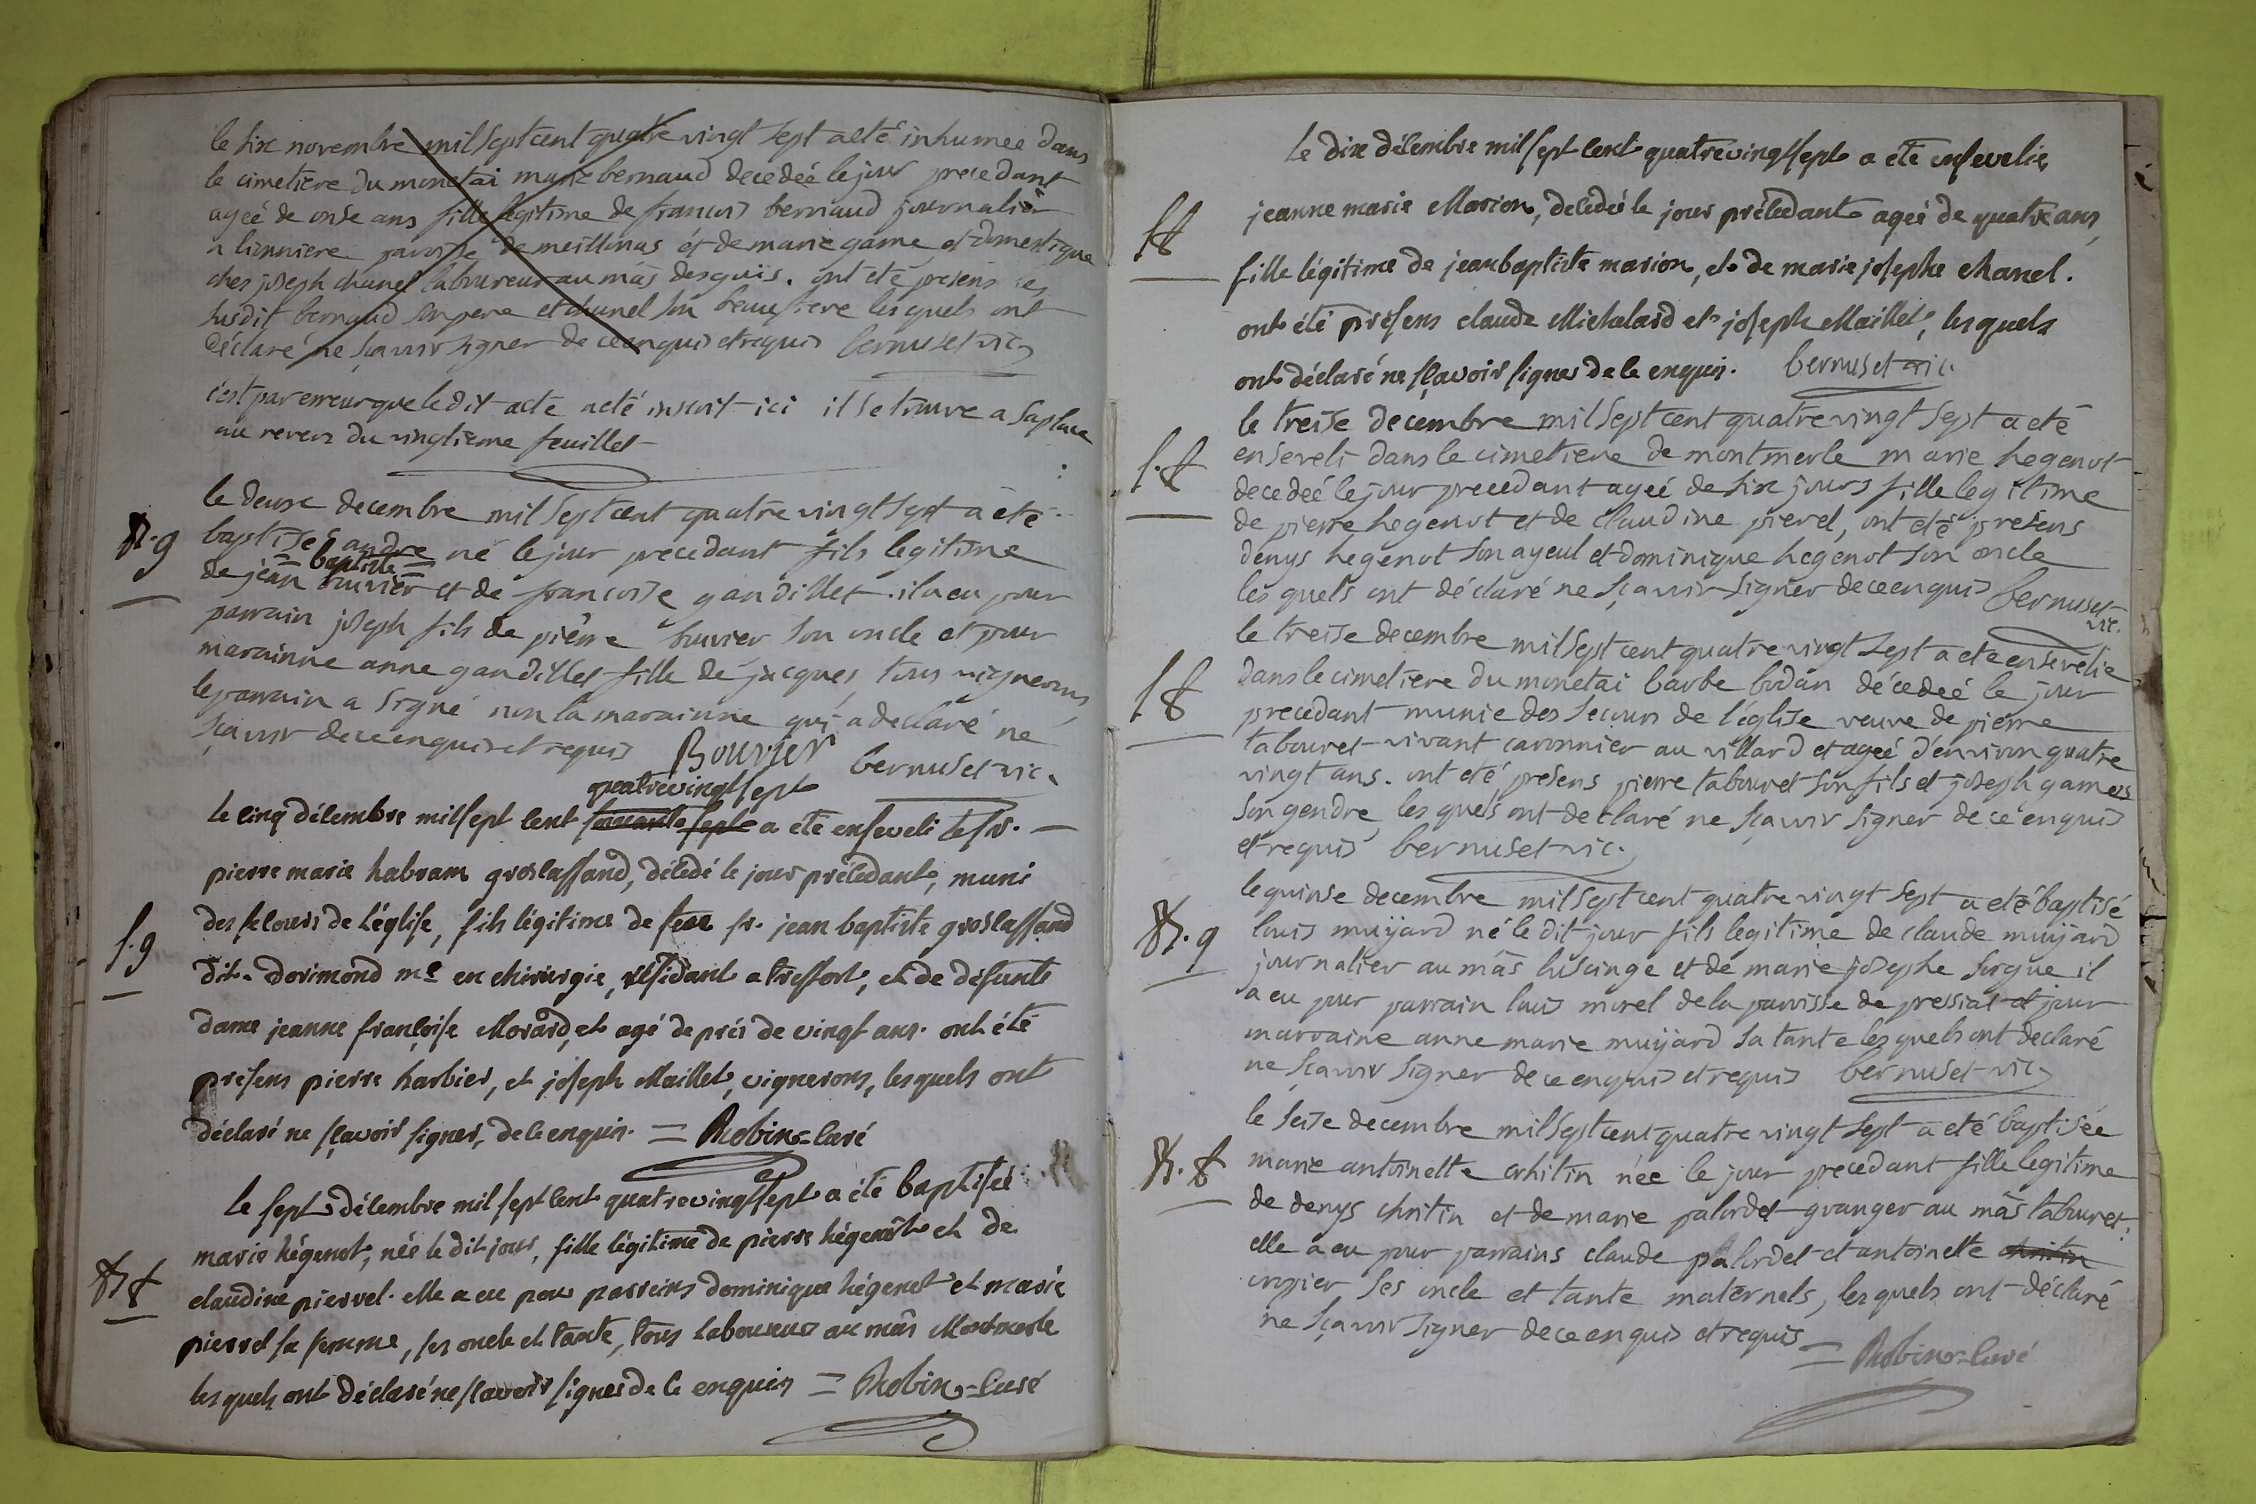 le six novembre mil sept cent quatre vingt sept a eté inhumee dans
le cimetiere du monetai marie bernaud decedeé le jour precedant
ageé de onse ans fille legitime de francois bernaud journalier
a lionniere paroisse de meillonas et de marie game et domestique
ches joseph chanel laboureur au mâs desguis. ont été présens les
susdit bernaud son pere et chanel son beaufrere les quels ont
déclaré ne sçavoir signer de ce enquis et requis bernuset vic.
c'est par erreur que le dit acte a eté inscrit ici il se trouve a sa place
au revers du vingtieme feuillet
le deuxe decembre mil sept cent quatre vingt sept a été
B. g baptisé andre né le jour precedant fils legitime
baptiste
de jean bouvier et de francoise gandillet. il a eu pour
parrain joseph fils de pierre bouvier son oncle et pour
marainne anne gandillet fille de jacques, tous vignerons
le parrain a signé non la marainne qui a declaré ne
sçavoir de ce enquis et requis Bouvier bernuset vic.
quatrevingt sept
le cinq décembre mil sept cent soixante sept a eté enseveli le sr.
pierre marie habram groslassand, décédé le jour précédant, muni
S. g des secours de l'église, fils légitime de feu sr. jean baptiste groslassand
dit dorimond me en chirurgie, résidant a tressort, et de défunte
dame jeanne françoise Morard, et agé de prés de vingt ans. ont été
présens pierre harbier, et joseph Maillet, vignerons, lesquels ont
déclaré ne sçavoir signer, de ce enquis. = Robin curé
Le sept décembre mil sept cent quatrevingt sept a été baptisée
marie hégenot, née le dit jour, fille légitime de pierre hégenot et de
B f claudine pierrel. elle a eu pour parreins dominique hégenot et marie
pierrel sa femme, ses oncle et tante, tous laboureurs au mâs Montmerle
lesquels ont déclaré ne sçavoir signer de ce enquis = Robin curé
Le dix décembre mil sept cent quatrevingt sept a été ensevelie
S f jeanne marie Marion, décédée le jour précédant ageé de quatre ans,
fille légitime de jean baptiste marion, et de marie josephe chanel.
ont été présens claude Michalard et joseph Maillet, lesquels
ont déclaré ne sçavoir signer de ce enquis. bernuset vic.
le treise decembre mil sept cent quatre vingt sept a eté
S. f enseveli dans le cimetiere de montmerle marie hegenot
decedeé le jour precedant ageé de six jours fille legitime
de pierre hegenot et de claudine pierel, ont été présens
denys hegenot son ayeul et dominique hegenot son oncle
les quels ont déclaré ne sçavoir signer de ce enquis bernuset
vic.
le treise decembre mil sept cent quatre vingt sept a eté ensevelie
S f dans le cimetiere du monetai barbe bodan décedeé le jour
precedant munie des secours de l'église veuve de pierre
tabouret vivant caronnier au villard et ageé d'environ quatre
vingt ans. ont eté présens pierre tabouret son fils et joseph games
son gendre, les quels ont declaré ne sçavoir signer de ce enquis
et requis bernuset vic.
le quinse decembre mil sept cent quatre vingt sept a eté baptisé
B. g louis muyard né le dit jour fils legitime de claude muyard
journalier au mâs luscinge et de marie josephe sorgue il
a eu pour parrain louis morel de la paroisse de pressiat et pour
marraine anne marie muyard sa tante les quels ont declaré
ne sçavoir signer de ce enquis et requis bernuset vic.
le seise decembre mil sept cent quatre vingt sept a eté baptisée
B. f marie antoinette chritin née le jour precedant fille legitime
de denys chritin et de marie palordet granger au mâs tabouret.
elle a eu pour parrains claude palordet et antoinette chritin
crozier ses oncle et tante maternels, les quels ont déclaré
ne sçavoir signer de ce enquis et requis
= Robin curé